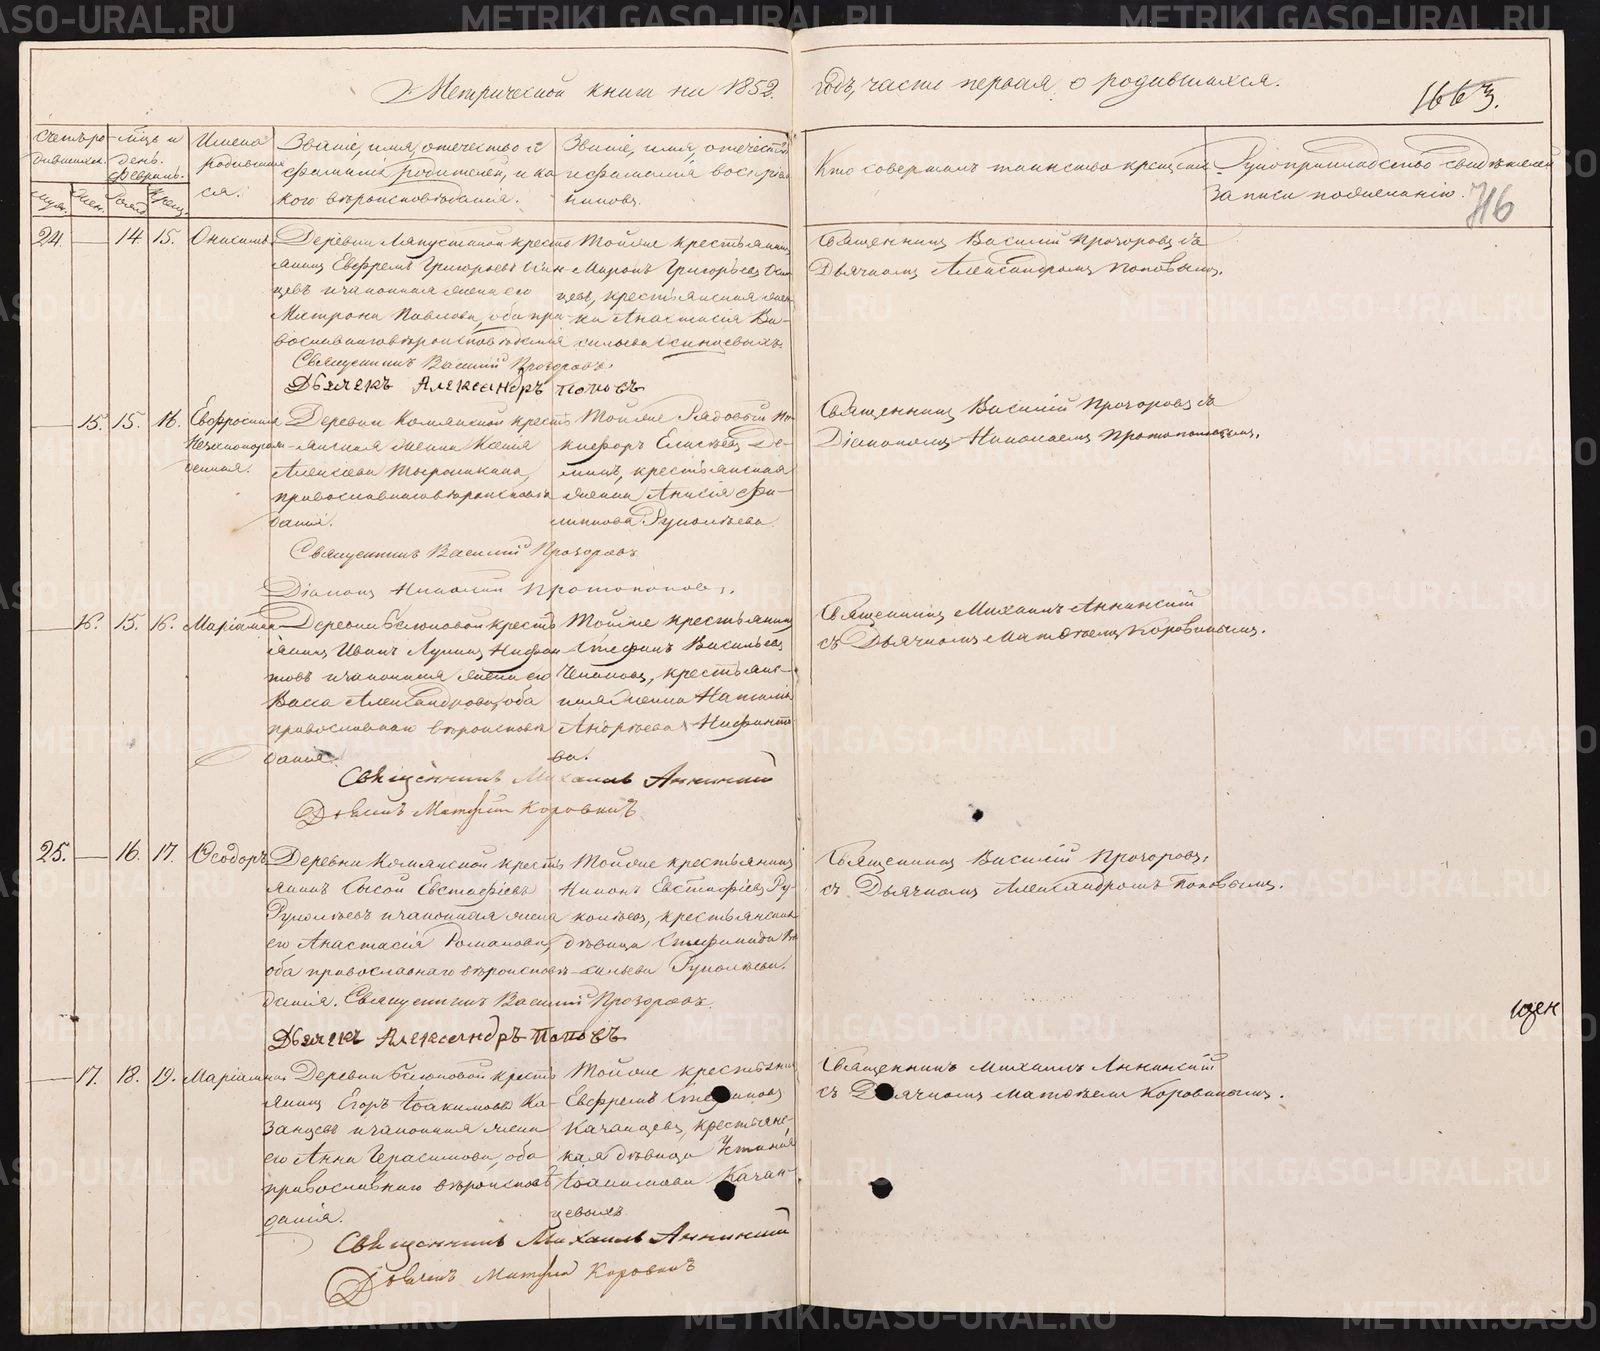 Метрической книги на 1852.
годъ, часть первая о родившихся.
1663.
716
Счетъ родившихся.
муж.
жен.
мѣсяцъ и день.
февраль.
Рожд.
Крещ.
Имена родившихся.
Званіе, имя, отечество и
фамилія родителей, и ка
кого вѣроисповѣданія.
Званіе, имя, отечество
и фамилія воспріем
никовъ.
Кто совершалъ таинство крещенія
Рукоприкладство свидѣтелей
записи по желанію.
24
14
15.
Онисимъ
Деревни крестья
янинъ Евфремъ Григорьевъ
и законная жена его
Матрона Павлова, оба пра
вославнаго вѣроисповѣданія
Священникъ Василій Прозоровъ.
Дьячекъ Александръ Поповъ
Тойже крестьянинъ
Миронъ Григорьевъ
крестьянская жен
ка Анастасія Ва
сильева
Священникъ Василій Прозоровъ съ
Дьячкомъ Александромъ Поповымъ.
15.
15.
16.
Евфросинія
Незаконорож
денная.
Деревни крест
янская женка Ксенія
Алексѣева
православнаго вѣроисповѣ
данія.
Священникъ Василій Прозоровъ
Діаконъ Николай Протопоповъ.
Тойже Рядовый Ни
кифоръ Елисѣевъ
крестьянская
женка Анисія Фи
липпова Руколѣева.
Священникъ Василій Прозоровъ съ
Діакономъ Николаемъ Протопоповымъ.
16.
15.
16.
Маріамна
Деревни крестья
янинъ Иванъ Нифан
товъ и законная жена его
Васса Александрова, оба
православнаго вѣроисповѣ
данія.
Священникъ Михаилъ Аннинскій
Дьячекъ Матфій Коровинъ
Тойже крестьянинъ
Стефанъ Васильевъ
крестьянс
кая женка Наталія
Андреева Нифанто
ва.
Священникъ Михаилъ Аннинскій
съ Дьячкомъ Матѳѣемъ Коровинымъ.
25.
16.
17.
Ѳеодоръ
Деревни крестья
янинъ Сысой Евстафіевъ
Руколѣевъ и законная жена
его Анастасія Романова,
оба православнаго вѣроисповѣ
данія. Священникъ Василій Прозоровъ.
Дьячекъ Александръ Поповъ
Тойже крестьянинъ
Никонъ Евстафіевъ Ру
колѣевъ, крестьянская
дѣвица Стефанида Ва
сильева Руколѣева.
Священникъ Василій Прозоровъ,
съ Дьячкомъ Александромъ Поповымъ.
17.
18.
19.
Маріамна
Деревни крестья
янинъ Егоръ Іоакимовъ Ка
занцевъ и законная жена
его Анна Герасимова, оба
православнаго вѣроисповѣ
данія.
Священникъ Михаилъ Аннинскій
Дьячекъ Матфій Коровинъ
Тойже крестьянинъ
Евфремъ Стефановъ
Казанцевъ, крестьянс
кая дѣвица Устинія
Іоакимова Казан
цевыхъ
Священникъ Михаилъ Аннинскій
съ Дьячкомъ Матѳѣемъ Коровинымъ.
METRIKI.GASO-URAL.RU